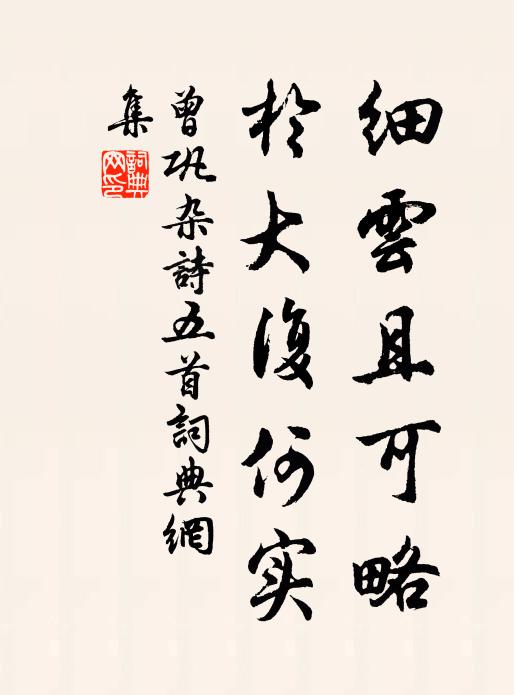 細雲且可略
於大復何实
曾巩杂詩五首詞典網
集
詞典
网印